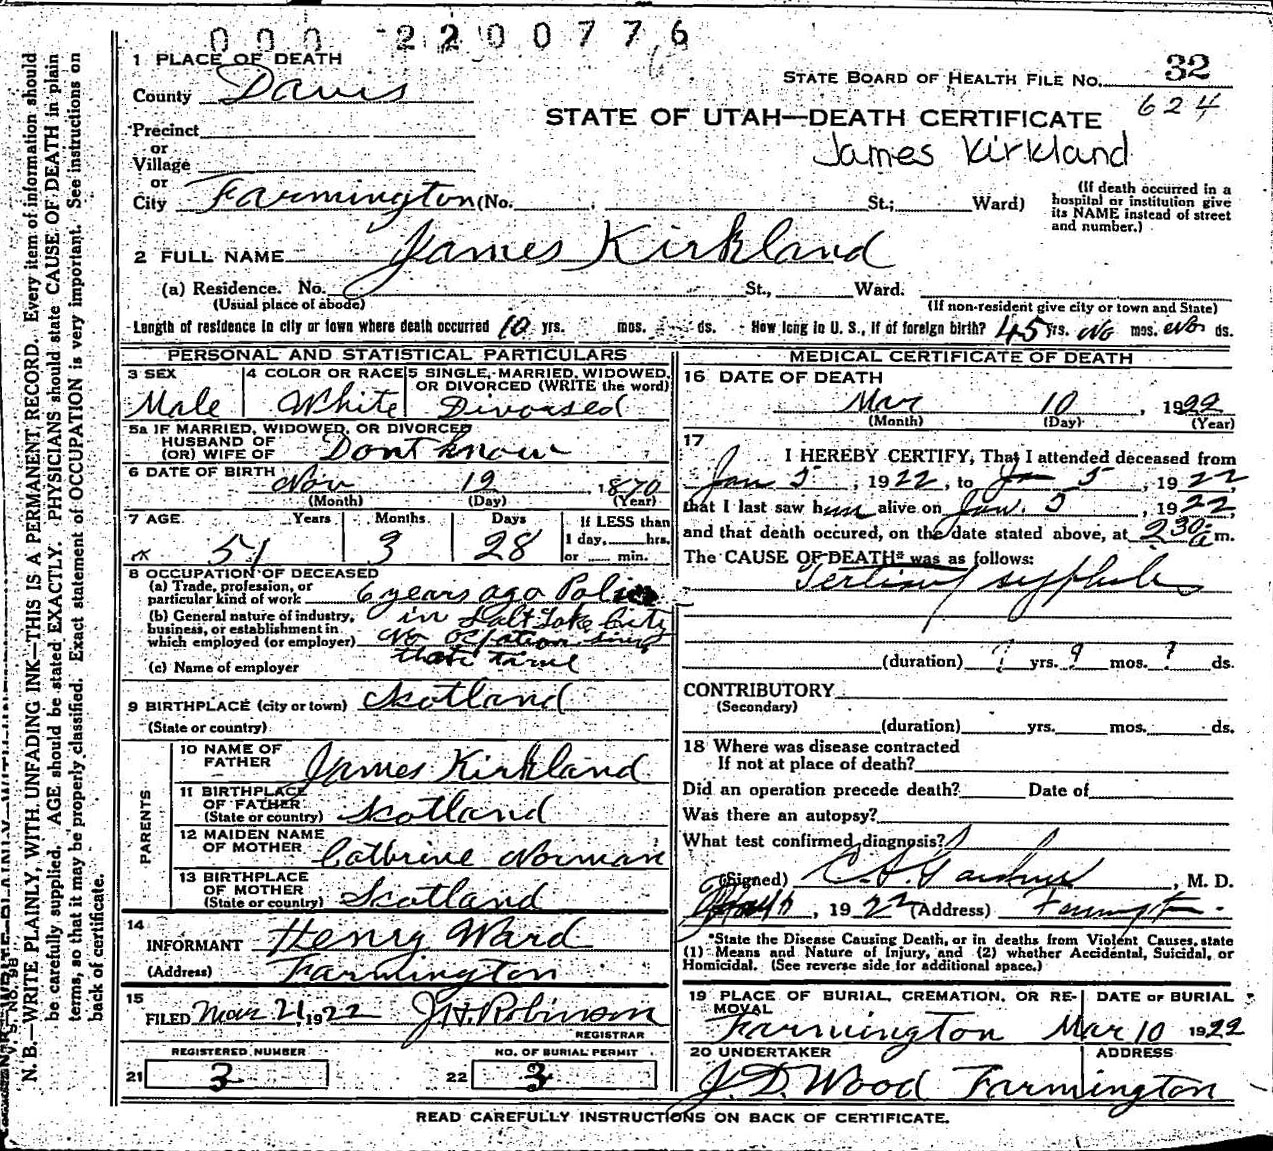 000 2200776
1 PLACE OF DEATH
County Davis
STATE BOARD OF HEALTH FILE NO. 32
624
STATE OF UTAH—DEATH CERTIFICATE
James Kirkland
Precinct
or
Village
or
City Farmington (No. , St.; Ward)
(If death occurred in a hospital or institution give its NAME instead of street and number.)
2 FULL NAME James Kirkland
(a) Residence. No. St., Ward.
(Usual place of abode)
(If non-resident give city or town and State)
Length of residence in city or town where death occurred 10 yrs. mos. ds. How long in U. S., if of foreign birth? 45 yrs. No mos. No ds.
PERSONAL AND STATISTICAL PARTICULARS
3 SEX
Male
4 COLOR OR RACE
White
5 SINGLE, MARRIED, WIDOWED, OR DIVORCED (WRITE the word)
Divorsed
5a IF MARRIED, WIDOWED, OR DIVORCED
HUSBAND OF
(OR) WIFE OF Dont know
6 DATE OF BIRTH Nov 12, 1870
(Month) (Day) (Year)
7 AGE Years Months Days
51 3 28
If LESS than
1 day, hrs.
or min.
8 OCCUPATION OF DECEASED
(a) Trade, profession, or
particular kind of work 6 years ago Police
(b) General nature of industry,
business, or establishment in
which employed (or employer) in Salt Lake City
No ocpation since
that time
(c) Name of employer
9 BIRTHPLACE (city or town) Scotland
(State or country)
PARENTS
10 NAME OF
FATHER James Kirkland
11 BIRTHPLACE
OF FATHER
(State or country) Scotland
12 MAIDEN NAME
OF MOTHER Cathrine Norman
13 BIRTHPLACE
OF MOTHER
(State or country) Scotland
14
INFORMANT Henry Ward
(Address) Farmington
15
FILED Mar 21, 1922 J. H. Robinson
REGISTRAR
REGISTERED NUMBER
21 3
NO. OF BURIAL PERMIT
22 3
MEDICAL CERTIFICATE OF DEATH
16 DATE OF DEATH
Mar 10, 1922
(Month) (Day) (Year)
17
I HEREBY CERTIFY, That I attended deceased from
Jan 5, 1922, to Jan 5, 1922,
that I last saw him alive on Jan. 5, 1922,
and that death occured, on the date stated above, at 2 30 a m.
The CAUSE OF DEATH* was as follows:
Tertiary syphilis
(duration) ? yrs. ? mos. ? ds.
CONTRIBUTORY
(Secondary)
(duration) yrs. mos. ds.
18 Where was disease contracted
If not at place of death?
Did an operation precede death? Date of
Was there an autopsy?
What test confirmed diagnosis?
(Signed) Gardner, M. D.
, 1922 (Address) Farmington
*State the Disease Causing Death, or in deaths from Violent Causes, state
(1) Means and Nature of Injury, and (2) whether Accidental, Suicidal, or
Homicidal. (See reverse side for additional space.)
19 PLACE OF BURIAL, CREMATION, OR RE-
MOVAL
Farmington
DATE OF BURIAL
Mar 10 1922
20 UNDERTAKER
J. D. Wood
ADDRESS
Farmington
READ CAREFULLY INSTRUCTIONS ON BACK OF CERTIFICATE.
N. B.—WRITE PLAINLY, WITH UNFADING INK—THIS IS A PERMANENT RECORD. Every item of information should
be carefully supplied. AGE should be stated EXACTLY. PHYSICIANS should state CAUSE OF DEATH in plain
terms, so that it may be properly classified. Exact statement of OCCUPATION is very important. See instructions on
back of certificate.